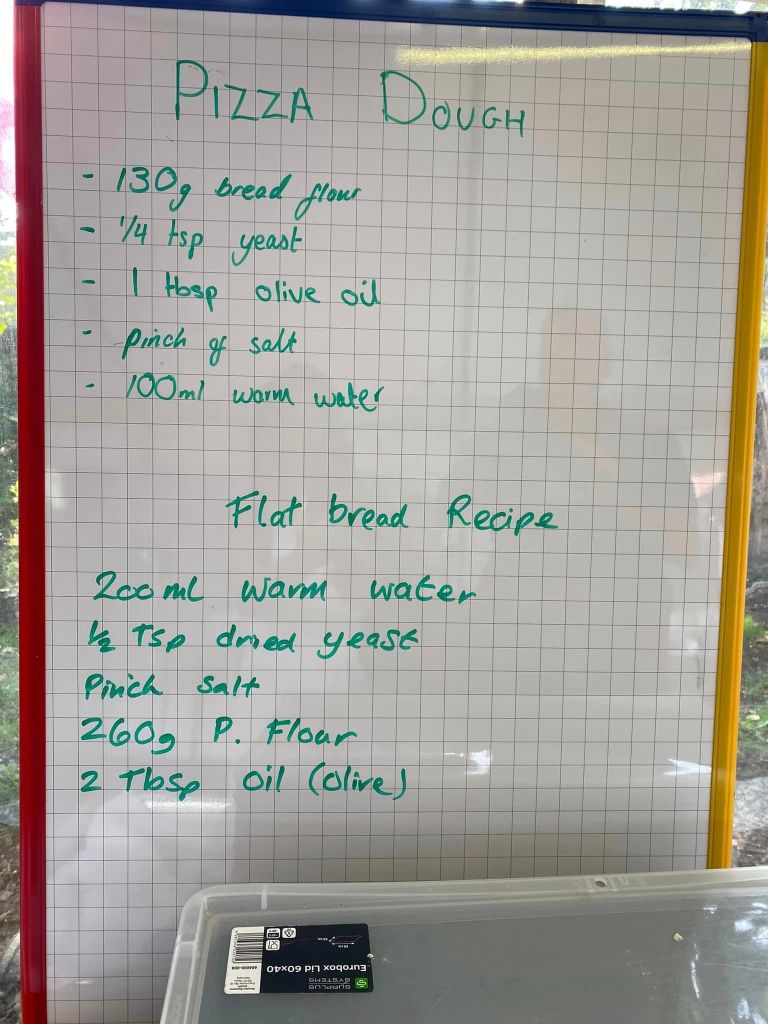 PIZZA DOUGH
- 130g bread flour
- 1/4 tsp yeast
- 1 tbsp olive oil
- pinch of salt
- 100ml warm water
Flat bread Recipe
200ml warm water
1/2 Tsp dried yeast
Pinch salt
260g P. Flour
2 Tbsp oil (olive)
Eurobox Lid 60x40
SURPLUS
SYSTEMS